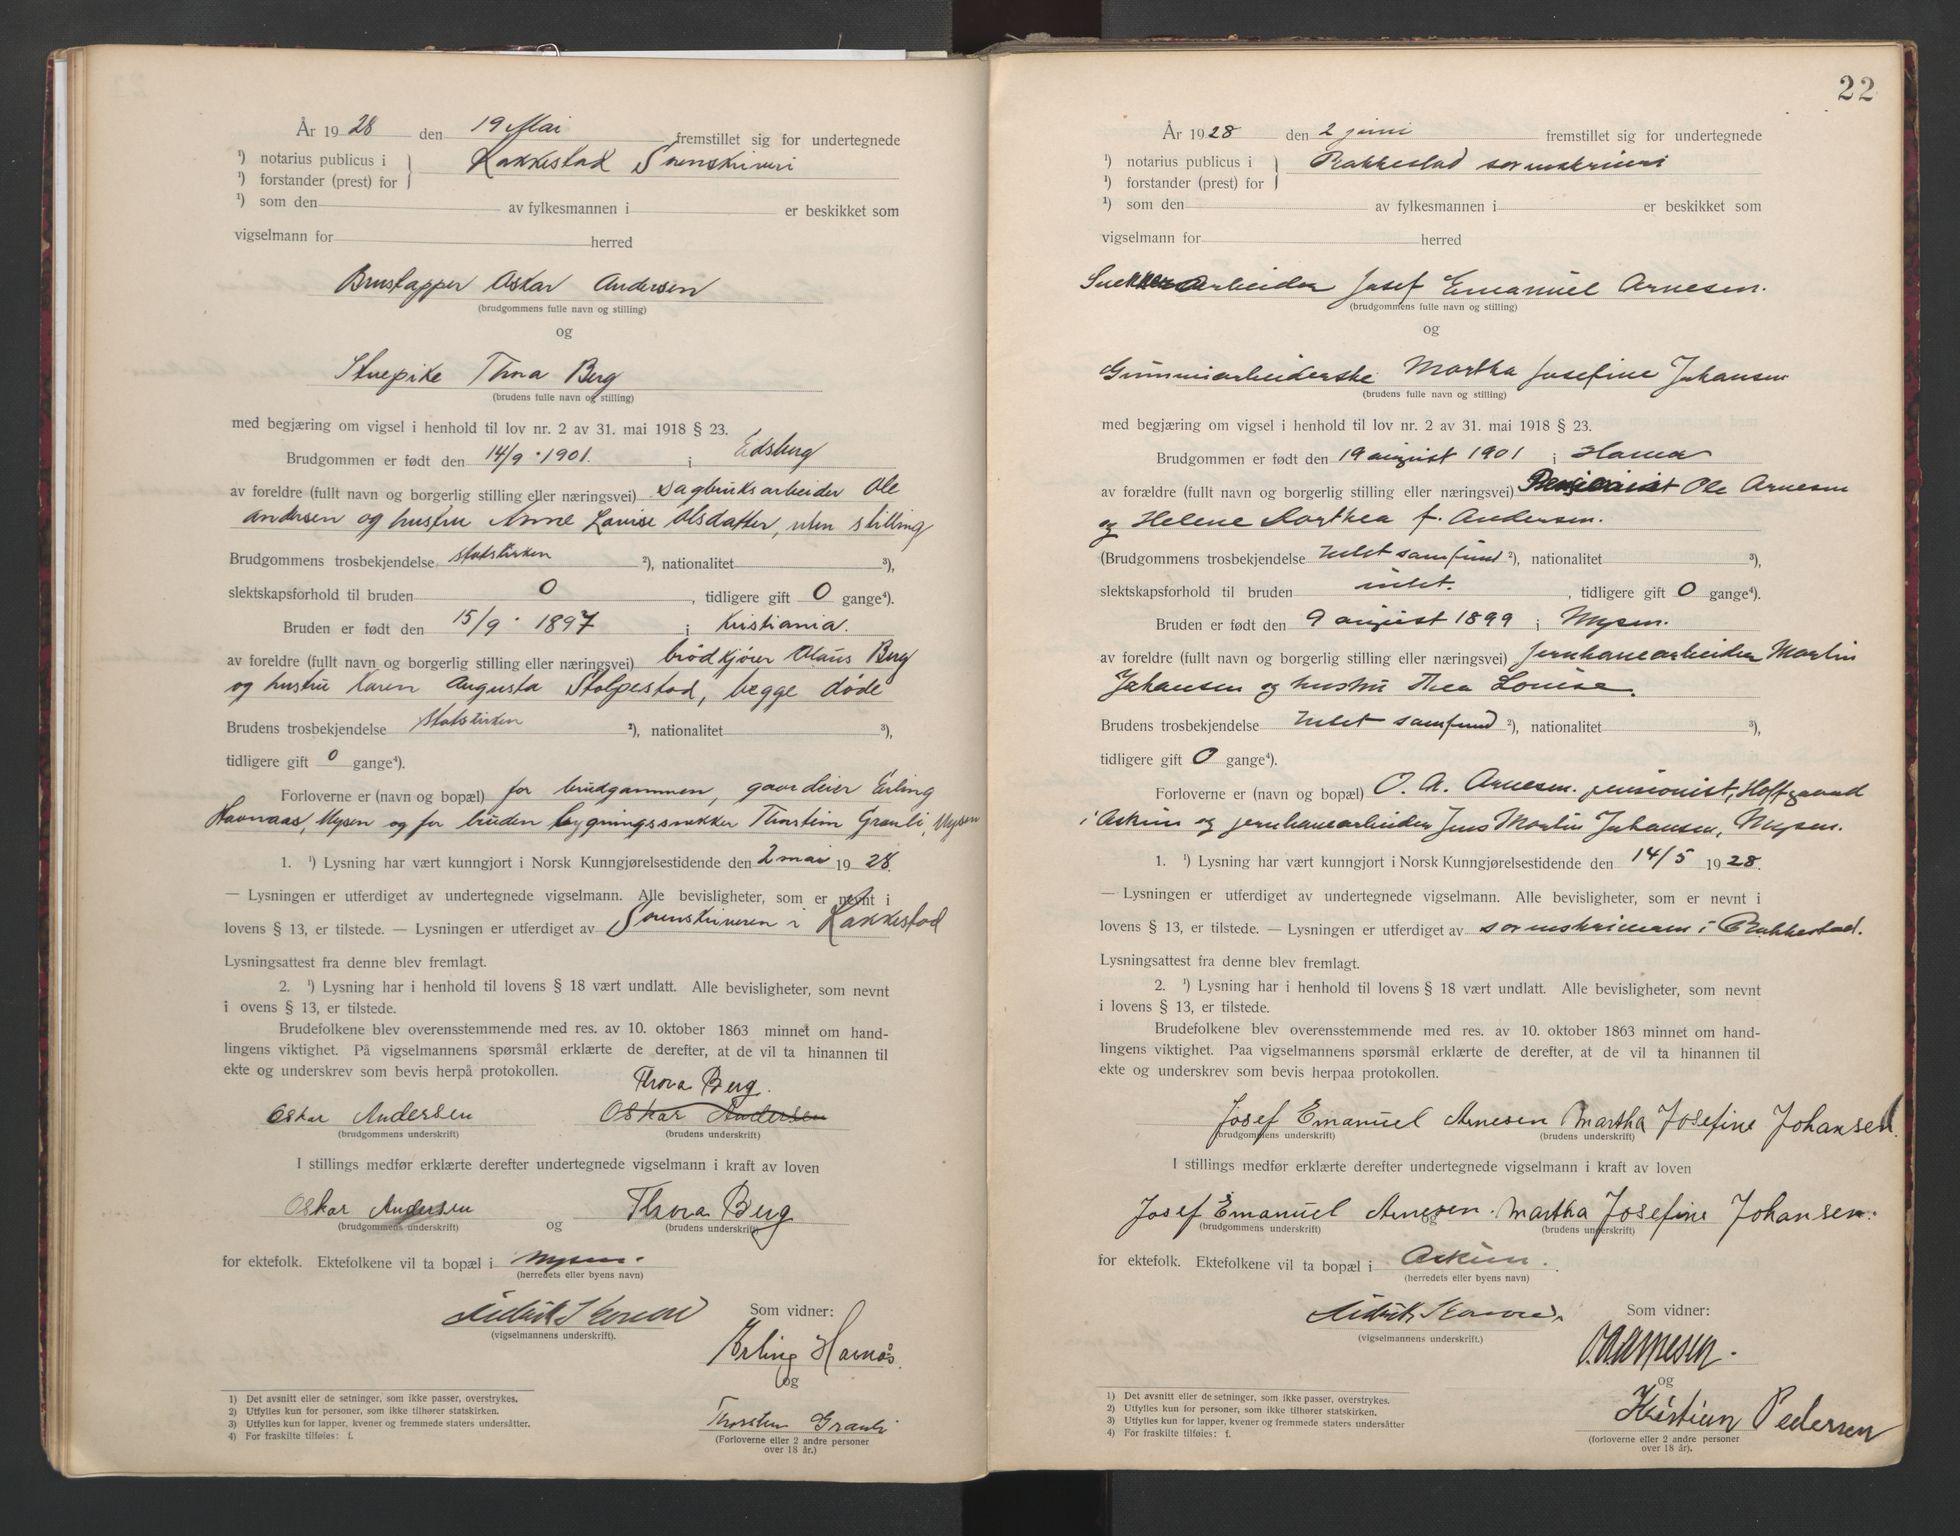 År 1928 den 19 Mai fremstillet sig for undertegnede
¹) notarius publicus i Rakkestad Sorenskriveri
¹) forstander (prest) for
¹) som den av fylkesmannen i er beskikket som
vigselmann for herred
Brustapper Oskar Andersen
(brudgommens fulle navn og stilling)
og
Stuepike Thora Berg
(brudens fulle navn og stilling)
med begjæring om vigsel i henhold til lov nr. 2 av 31. mai 1918 § 23.
Brudgommen er født den 14/9 · 1901. i Edsberg
av foreldre (fullt navn og borgerlig stilling eller næringsvei) sagbruksarbeider Ole
Andersen og hustru Anne Lovise Olsdatter, uten stilling
Brudgommens trosbekjendelse statskirken ²), nationalitet ³),
slektskapsforhold til bruden 0, tidligere gift 0 gange⁴).
Bruden er født den 15/9 · 1897 i Kristiania.
av foreldre (fullt navn og borgerlig stilling eller næringsvei) brødkjører Olaus Berg
og hustru Karen Augusta Stolpestad, begge døde
Brudens trosbekjendelse statskirken ²), nationalitet ³),
tidligere gift 0 gange⁴).
Forloverne er (navn og bopæl) for brudgommen, gaardeier Erling
Havnaas, Mysen og for bruden bygningssnekker Thorstein Granli, Mysen
1. ¹) Lysning har vært kunngjort i Norsk Kunngjørelsestidende den 2 mai 1928.
— Lysningen er utferdiget av undertegnede vigselmann. Alle bevisligheter, som er nevnt i
lovens § 13, er tilstede. — Lysningen er utferdiget av Sorenskriveren i Rakkestad
Lysningsattest fra denne blev fremlagt.
2. ¹) Lysning har i henhold til lovens § 18 vært undlatt. Alle bevisligheter, som nevnt
i ovens § 13, er tilstede.
Brudefolkene blev overensstemmende med res. av 10. oktober 1863 minnet om hand-
lingens viktighet. På vigselmannens spørsmål erklærte de derefter, at de vil ta hinannen til
ekte og underskrev som bevis herpå protokollen.
Thora Berg.
Oskar Andersen Oskar Andersen
(brudgommens underskrift) (brudens underskrift)
I stillings medfør erklærte derefter undertegnede vigselmann i kraft av loven
Oskar Andersen og Thora Berg
(brudgommens underskrift) (brudens underskrift)
for ektefolk. Ektefolkene vil ta bopæl i Mysen.
(herredets eller byens navn)
Som vidner:
(vigselmannens underskrift).
Erling Havnås.
og
Thorstein Granli
(Forloverne eller 2 andre personer
over 18 år.)
1) Det avsnitt eller de setninger, som ikke passer, overstrykes.
2) Utfylles kun for personer, som ikke tilhører statskirken.
3) Utfylles kun for lapper, kvener og fremmede staters undersåtter.
4) For fraskilte tilføies: f.
22
År 1928 den 2 juni fremstillet sig for undertegnede
¹) notarius publicus i Rakkestad sorenskriveri
¹) forstander (prest) for
¹) som den av fylkesmannen i er beskikket som
vigselmann for herred
arbeider Josef Emanuel Arnesen.
(brudgommens fulle navn og stilling)
og
Gummiarbeiderske Martha Josefine Johansen
(brudens fulle navn og stilling)
med begjæring om vigsel i henhold til lov nr. 2 av 31. mai 1918 § 23.
Brudgommen er født den 19 august 1901 i
av forældre (fullt navn og borgerlig stilling eller næringsvei) Pensionist Ole Arnesen
og Helene Dorthea f. Andersen.
(Brudgommens trosbekjendelse intet samfund ²), nationalitet ³),
slektskapsforhold til bruden intet., tidligere gift 0 gange⁴).
Bruden er født den 9 august 1899 i Mysen.
av foreldre (fullt navn og borgerlig stilling eller næringsvei) jernbanearbeider Martin
Johansen og hustru Thea Louise.
Brudens trosbekjendelse intet samfund ²), nationalitet ³),
tidligere gift 0 gange⁴).
Forloverne er (navn og bopæl) O. A. Arnesen. pensionist, Hoffgaard
i Askim og jernbanearbeider Jens Martin Johansen, Mysen.
1. ¹) Lysning har vært kunngjort i Norsk Kunngjørelsestidende den 14/5 1928.
— Lysningen er utferdiget av undertegnede vigselmann. Alle bevisligheter, som er nevnt i
lovens § 13, er tilstede. — Lysningen er utferdiget av sorenskriveren i Rakkestad.
Lysningsattest fra denne blev fremlagt.
2. ¹) Lysning har i henhold til lovens § 18 vært undlatt. Alle bevisligheter, som nevnt
i lovens § 13, er tilstede.
Brudefolkene blev overensstemmende med res. av 10. oktober 1863 minnet om hand-
lingens viktighet. Paa vigselmannens spørsmål erklærte de derefter, at de vil ta hinannen til
ekte og underskrev som bevis herpaa protokollen.
Josef Emanuel Arnesen Martha Josefine Johansen.
(brudgommens underskrift) (brudens underskrift)
I stillings medfør erklærte derefter undertegnede vigselmann i kraft av loven
Josef Emanuel Arnesen. og Martha Josefine Johansen.
(brudgommens underskrift) (brudens underskrift)
for ektefolk. Ektefolkene vil ta bopæl i Askim.
(herredets eller byens navn)
Som vidner:
(vigselmannens underskrift.)
O. A. Arnesen.
og
Kristian Pedersen
(forloverne eller 2 andre personer
over 18 år).
1) Det avsnitt eller de setninger, som ikke passer, overstrykes.
2) Utfylles kun for personer, som ikke tilhører statskirken.
3) Utfylles kun for lapper, kvener og fremmede staters undersåtter
4) For fraskilte tilføies: f.